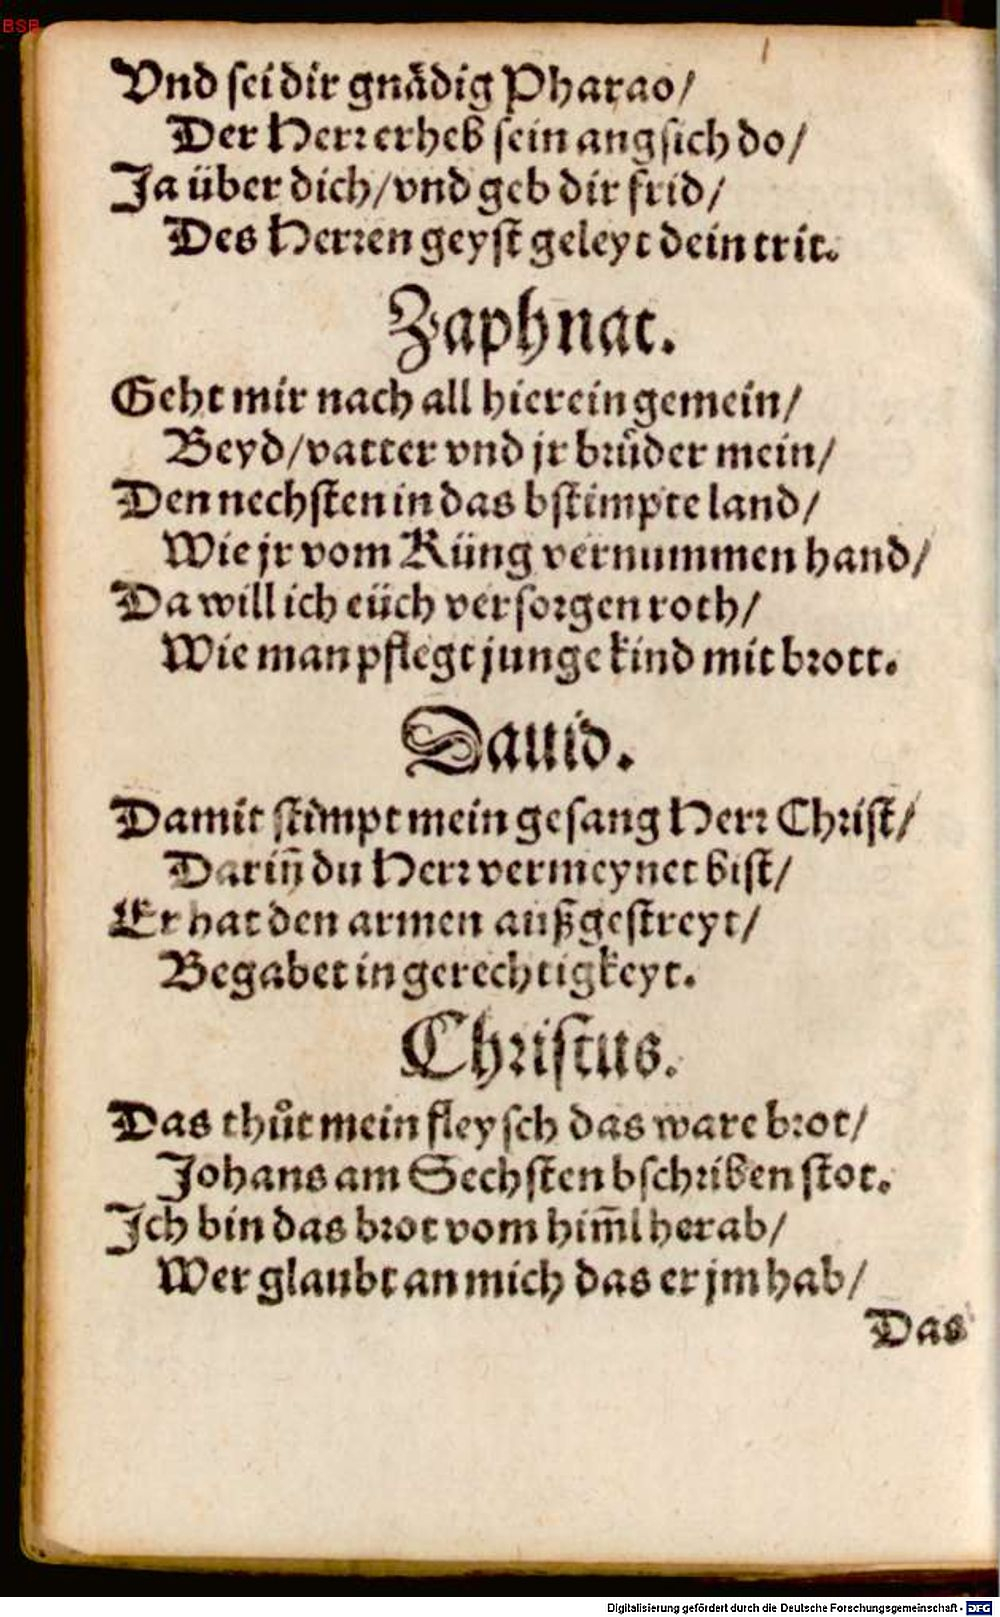 BSB
Vnd sei dir gnädig Pharao/
Der Herr erheb sein angsich do/
Ja über dich/vnd geb dir frid/
Des Herren geyst geleyt dein trit.
Zaphnat.
Geht mir nach all hierein gemein/
Beyd/vatter vnd jr bruͤder mein/
Den nechsten in das bstimpte land/
Wie jr vom Küng vernummen hand/
Da will ich eüch versorgen roth/
Wie man pflegt junge kind mit brott.
Dauid.
Damit stimpt mein gesang Herr Christ/
Dariñ du Herr vermeynet bist/
Er hat den armen außgestreyt/
Begabet in gerechtigkeyt.
Christus.
Das thuͦt mein fleysch das ware brot/
Johans am Sechsten bschriben stot.
Ich bin das brot vom him̄l herab/
Wer glaubt an mich das er jm hab/
Das
Digitalisierung gefördert durch die Deutsche Forschungsgemeinschaft - DFG